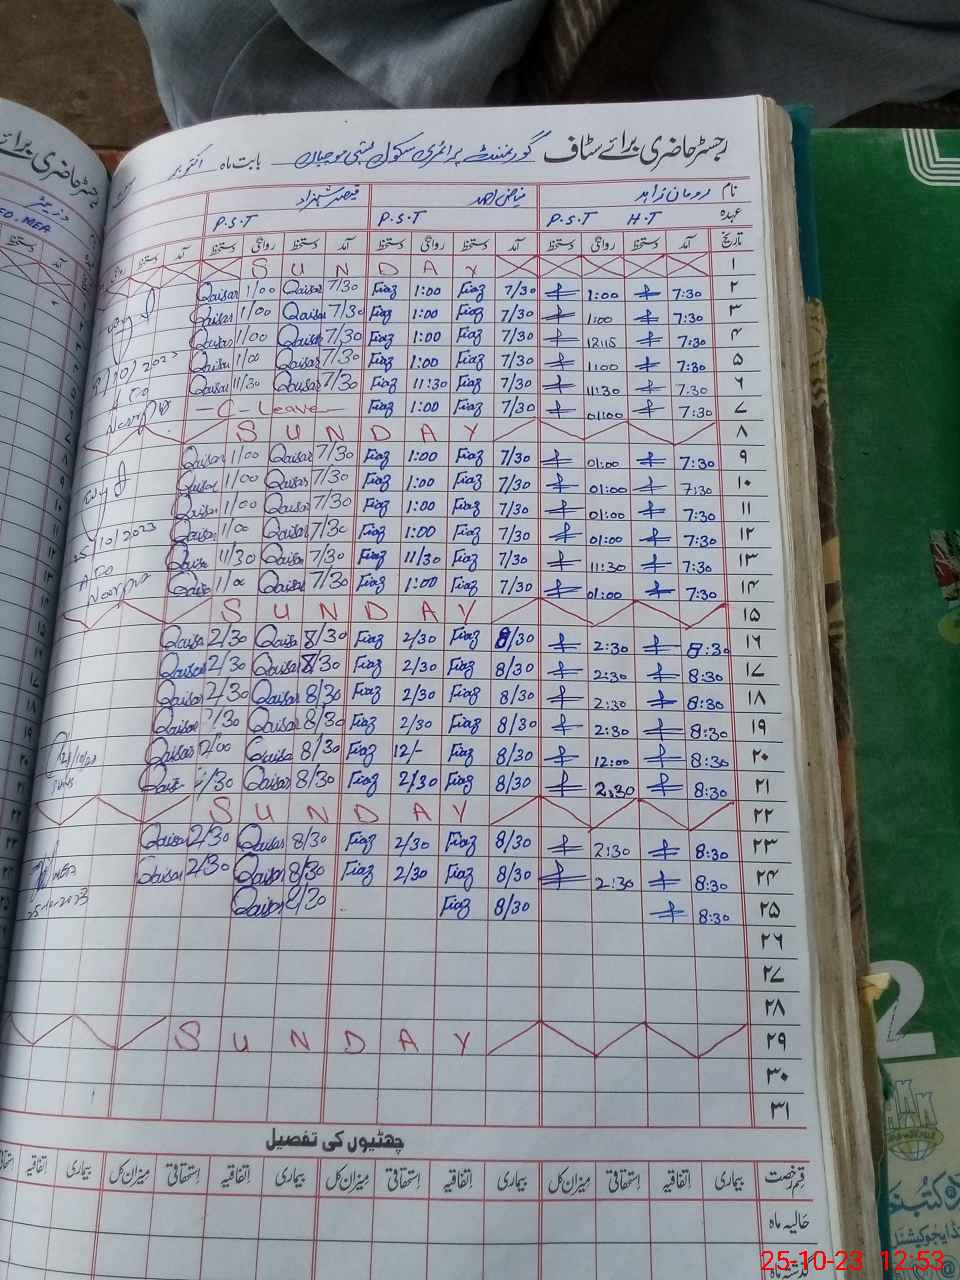 رجسٹر حاضری برائے سٹاف گورنمنٹ پرائمری سکول بستی موجہاں بابت ماہ اکتوبر
نام رومان زاہد فیاض احمد قیصر شہزاد
عہدہ P.S.T H.T P.S.T P.S.T
تاریخ آمد دستخط روانگی دستخط آمد دستخط روانگی دستخط آمد دستخط روانگی دستخط آمد دستخط
S U N D A Y ۱
Qaisar 1/00 Qaisar 7/30 Fiaz 1:00 Fiaz 7/30 1:00 7:30 ۲
Qaisar 1/00 Qaisar 7/30 Fiaz 1:00 Fiaz 7/30 1:00 7:30 ۳
Qaisar 1/00 Qaisar 7/30 Fiaz 1:00 Fiaz 7/30 12:15 7:30 ۴
Qaisar 1/00 Qaisar 7/30 Fiaz 1:00 Fiaz 7/30 1:00 7:30 ۵
Qaisar 11/30 Qaisar 7/30 Fiaz 11:30 Fiaz 7/30 11:30 7:30 ۶
C-Leave Fiaz 1:00 Fiaz 7/30 01:00 7:30 ۷
S U N D A Y ۸
Qaisar 1/00 Qaisar 7/30 Fiaz 1:00 Fiaz 7/30 01:00 7:30 ۹
Qaisar 1/00 Qaisar 7/30 Fiaz 1:00 Fiaz 7/30 01:00 7:30 ۱۰
Qaisar 1/00 Qaisar 7/30 Fiaz 1:00 Fiaz 7/30 01:00 7:30 ۱۱
25/10/2023 Qaisar 1/00 Qaisar 7/30 Fiaz 1:00 Fiaz 7/30 01:00 7:30 ۱۲
Qaisar 11/30 Qaisar 7/30 Fiaz 11/30 Fiaz 7/30 11:30 7:30 ۱۳
Qaisar 1/00 Qaisar 7/30 Fiaz 1:00 Fiaz 7/30 01:00 7:30 ۱۴
S U N D A Y ۱۵
Qaisar 2/30 Qaisar 8/30 Fiaz 2/30 Fiaz 8/30 2:30 8:30 ۱۶
Qaisar 2/30 Qaisar 8/30 Fiaz 2/30 Fiaz 8/30 2:30 8:30 ۱۷
Qaisar 2/30 Qaisar 8/30 Fiaz 2/30 Fiaz 8/30 2:30 8:30 ۱۸
Qaisar /30 Qaisar 8/30 Fiaz 2/30 Fiaz 8/30 2:30 8:30 ۱۹
Qaisar /00 Qaisar 8/30 Fiaz 12/- Fiaz 8/30 12:00 8:30 ۲۰
/30 Qaisar 8/30 Fiaz 2/30 Fiaz 8/30 2:30 8:30 ۲۱
S U N D A Y ۲۲
Qaisar 2/30 Qaisar 8/30 Fiaz 2/30 Fiaz 8/30 2:30 8:30 ۲۳
Qaisar 2/30 Qaisar 8/30 Fiaz 2/30 Fiaz 8/30 2:30 8:30 ۲۴
25-10-2023 Qaisar 8/30 Fiaz 8/30 8:30 ۲۵
۲۶
۲۷
۲۸
S U N D A Y ۲۹
۳۰
۳۱
چھٹیوں کی تفصیل
قسم رخصت بیماری اتفاقیہ استحقاقی میزان کل بیماری اتفاقیہ استحقاقی میزان کل بیماری اتفاقیہ استحقاقی میزان کل بیماری اتفاقیہ
حالیہ ماہ
گذشتہ ماہ
2
25-10-23 12:53